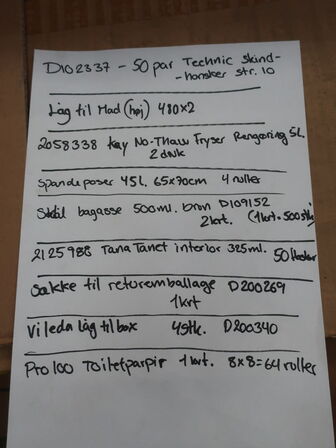 D102337 - 50 par Technic skind-
- hansker str. 10
Låg til Mad (høj) 480x2
2058338 Kay No-Thaw Fryser Rengøring 5L.
2 dunk
Spandeposer 45L. 65x70cm 4 ruller
Skål bagasse 500ml. brun D109152
2krt. (1krt=500stk)
2125988 Tana Tanet interior 325ml.
Sække til returemballage D200269
1krt
Vileda Låg til box 4stk. D200340
Pro100 Toiletpapir 1krt. 8x8=64 ruller